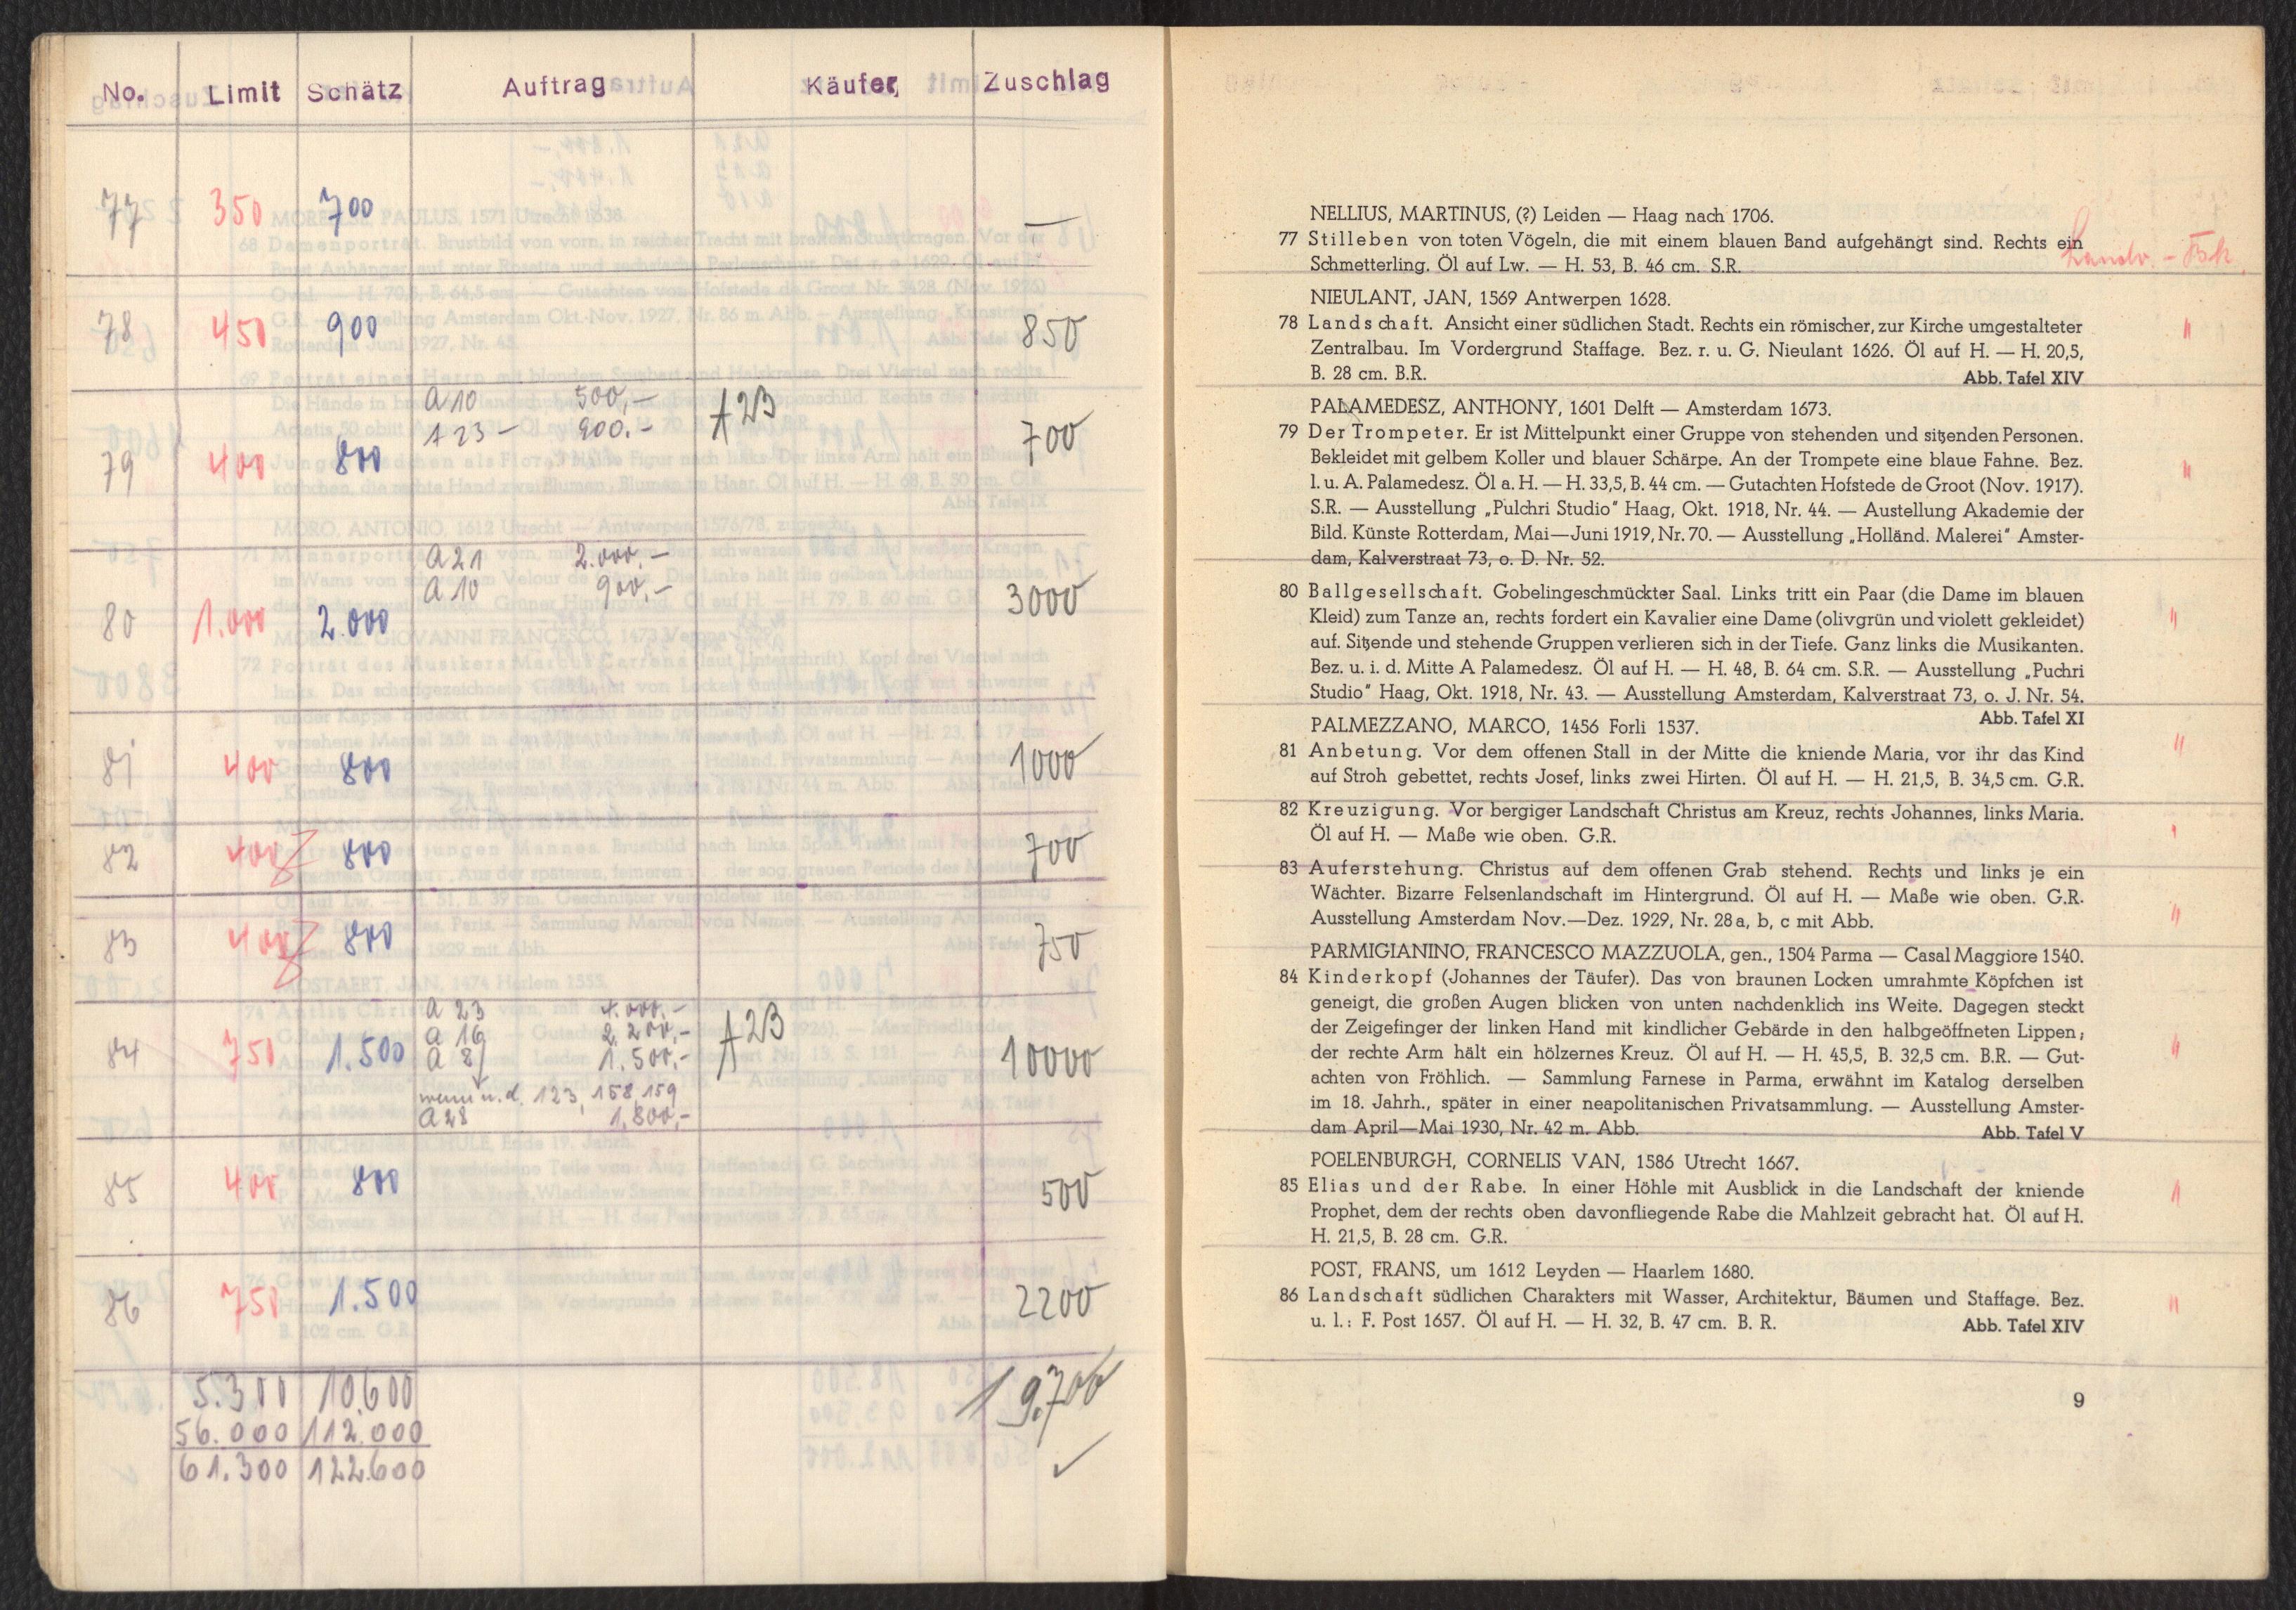 No. Limit Schätz Auftrag Käufer Zuschlag
77 350 700 —
78 450 900 850
A 10 500,—
A 23 — 900.— A 23
79 400 800 700
A 21 2.000.—
A 10 900,—
80 1.000 2.000 3000
81 400 800 1000
82 400 800 700
83 400 800 750
A 23 4.000.—
A 16 2.200,— A 23
84 750 1.500 A 8 1.500,— 10000
wenn n. d. 123, 158, 159
A 28 1.800,—
85 400 800 500
86 750 1.500 2200
5.300 10.600 19.700
56.000 112.000
61.300 122.600 ✓
NELLIUS, MARTINUS, (?) Leiden — Haag nach 1706.
77 Stilleben von toten Vögeln, die mit einem blauen Band aufgehängt sind. Rechts ein
Schmetterling. Öl auf Lw. — H. 53, B. 46 cm. S.R.
NIEULANT, JAN, 1569 Antwerpen 1628.
78 Landschaft. Ansicht einer südlichen Stadt. Rechts ein römischer, zur Kirche umgestalteter "
Zentralbau. Im Vordergrund Staffage. Bez. r. u. G. Nieulant 1626. Öl auf H. — H. 20,5,
B. 28 cm. B.R. Abb. Tafel XIV
PALAMEDESZ, ANTHONY, 1601 Delft — Amsterdam 1673.
79 Der Trompeter. Er ist Mittelpunkt einer Gruppe von stehenden und sitzenden Personen.
Bekleidet mit gelbem Koller und blauer Schärpe. An der Trompete eine blaue Fahne. Bez. "
l. u. A. Palamedesz. Öl a. H. — H. 33,5, B. 44 cm. — Gutachten Hofstede de Groot (Nov. 1917).
S.R. — Ausstellung „Pulchri Studio" Haag, Okt. 1918, Nr. 44. — Austellung Akademie der
Bild. Künste Rotterdam, Mai—Juni 1919, Nr. 70. — Ausstellung „Holländ. Malerei" Amster-
dam, Kalverstraat 73, o. D. Nr. 52.
80 Ballgesellschaft. Gobelingeschmückter Saal. Links tritt ein Paar (die Dame im blauen
Kleid) zum Tanze an, rechts fordert ein Kavalier eine Dame (olivgrün und violett gekleidet) "
auf. Sitzende und stehende Gruppen verlieren sich in der Tiefe. Ganz links die Musikanten.
Bez. u. i. d. Mitte A Palamedesz. Öl auf H. — H. 48, B. 64 cm. S.R. — Ausstellung „Puchri
Studio" Haag, Okt. 1918, Nr. 43. — Ausstellung Amsterdam, Kalverstraat 73, o. J. Nr. 54.
Abb. Tafel XI
PALMEZZANO, MARCO, 1456 Forli 1537.
81 Anbetung. Vor dem offenen Stall in der Mitte die kniende Maria, vor ihr das Kind "
auf Stroh gebettet, rechts Josef, links zwei Hirten. Öl auf H. — H. 21,5, B. 34,5 cm. G.R.
82 Kreuzigung. Vor bergiger Landschaft Christus am Kreuz, rechts Johannes, links Maria.
Öl auf H. — Maße wie oben. G.R. "
83 Auferstehung. Christus auf dem offenen Grab stehend. Rechts und links je ein
Wächter. Bizarre Felsenlandschaft im Hintergrund. Öl auf H. — Maße wie oben. G.R.
Ausstellung Amsterdam Nov.—Dez. 1929, Nr. 28 a, b, c mit Abb. "
PARMIGIANINO, FRANCESCO MAZZUOLA, gen., 1504 Parma — Casal Maggiore 1540.
84 Kinderkopf (Johannes der Täufer). Das von braunen Locken umrahmte Köpfchen ist
geneigt, die großen Augen blicken von unten nachdenklich ins Weite. Dagegen steckt
der Zeigefinger der linken Hand mit kindlicher Gebärde in den halbgeöffneten Lippen;
der rechte Arm hält ein hölzernes Kreuz. Öl auf H. — H. 45,5, B. 32,5 cm. B.R. — Gut- "
achten von Fröhlich. — Sammlung Farnese in Parma, erwähnt im Katalog derselben
im 18. Jahrh., später in einer neapolitanischen Privatsammlung. — Ausstellung Amster-
dam April—Mai 1930, Nr. 42 m. Abb. Abb. Tafel V
POELENBURGH, CORNELIS VAN, 1586 Utrecht 1667.
85 Elias und der Rabe. In einer Höhle mit Ausblick in die Landschaft der kniende "
Prophet, dem der rechts oben davonfliegende Rabe die Mahlzeit gebracht hat. Öl auf H.
H. 21,5, B. 28 cm. G.R.
POST, FRANS, um 1612 Leyden — Haarlem 1680.
86 Landschaft südlichen Charakters mit Wasser, Architektur, Bäumen und Staffage. Bez. "
u. l.: F. Post 1657. Öl auf H. — H. 32, B. 47 cm. B. R. Abb. Tafel XIV
9